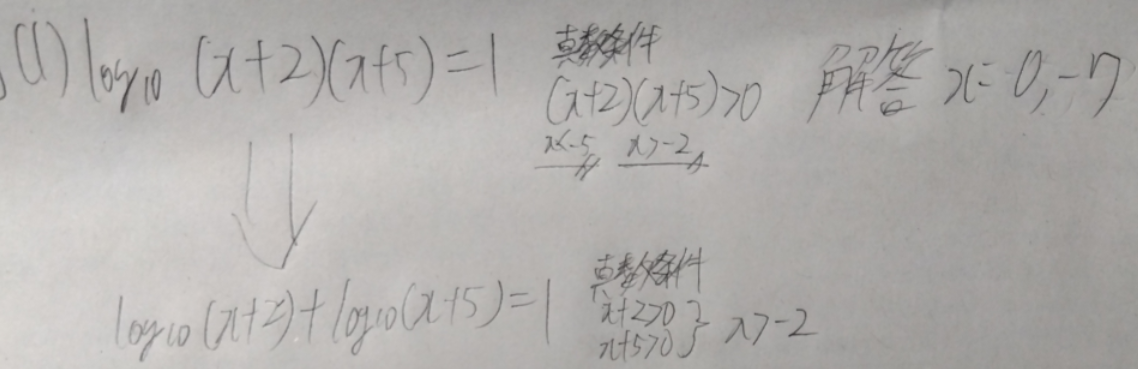 (1) log₁₀ (x+2)(x+5)=1 真数条件 解答 x=0,-7
(x+2)(x+5)>0
x<-5, x>-2
⇓
log₁₀(x+2)+log₁₀(x+5)=1 真数条件
x+2>0
x+5>0 } x>-2